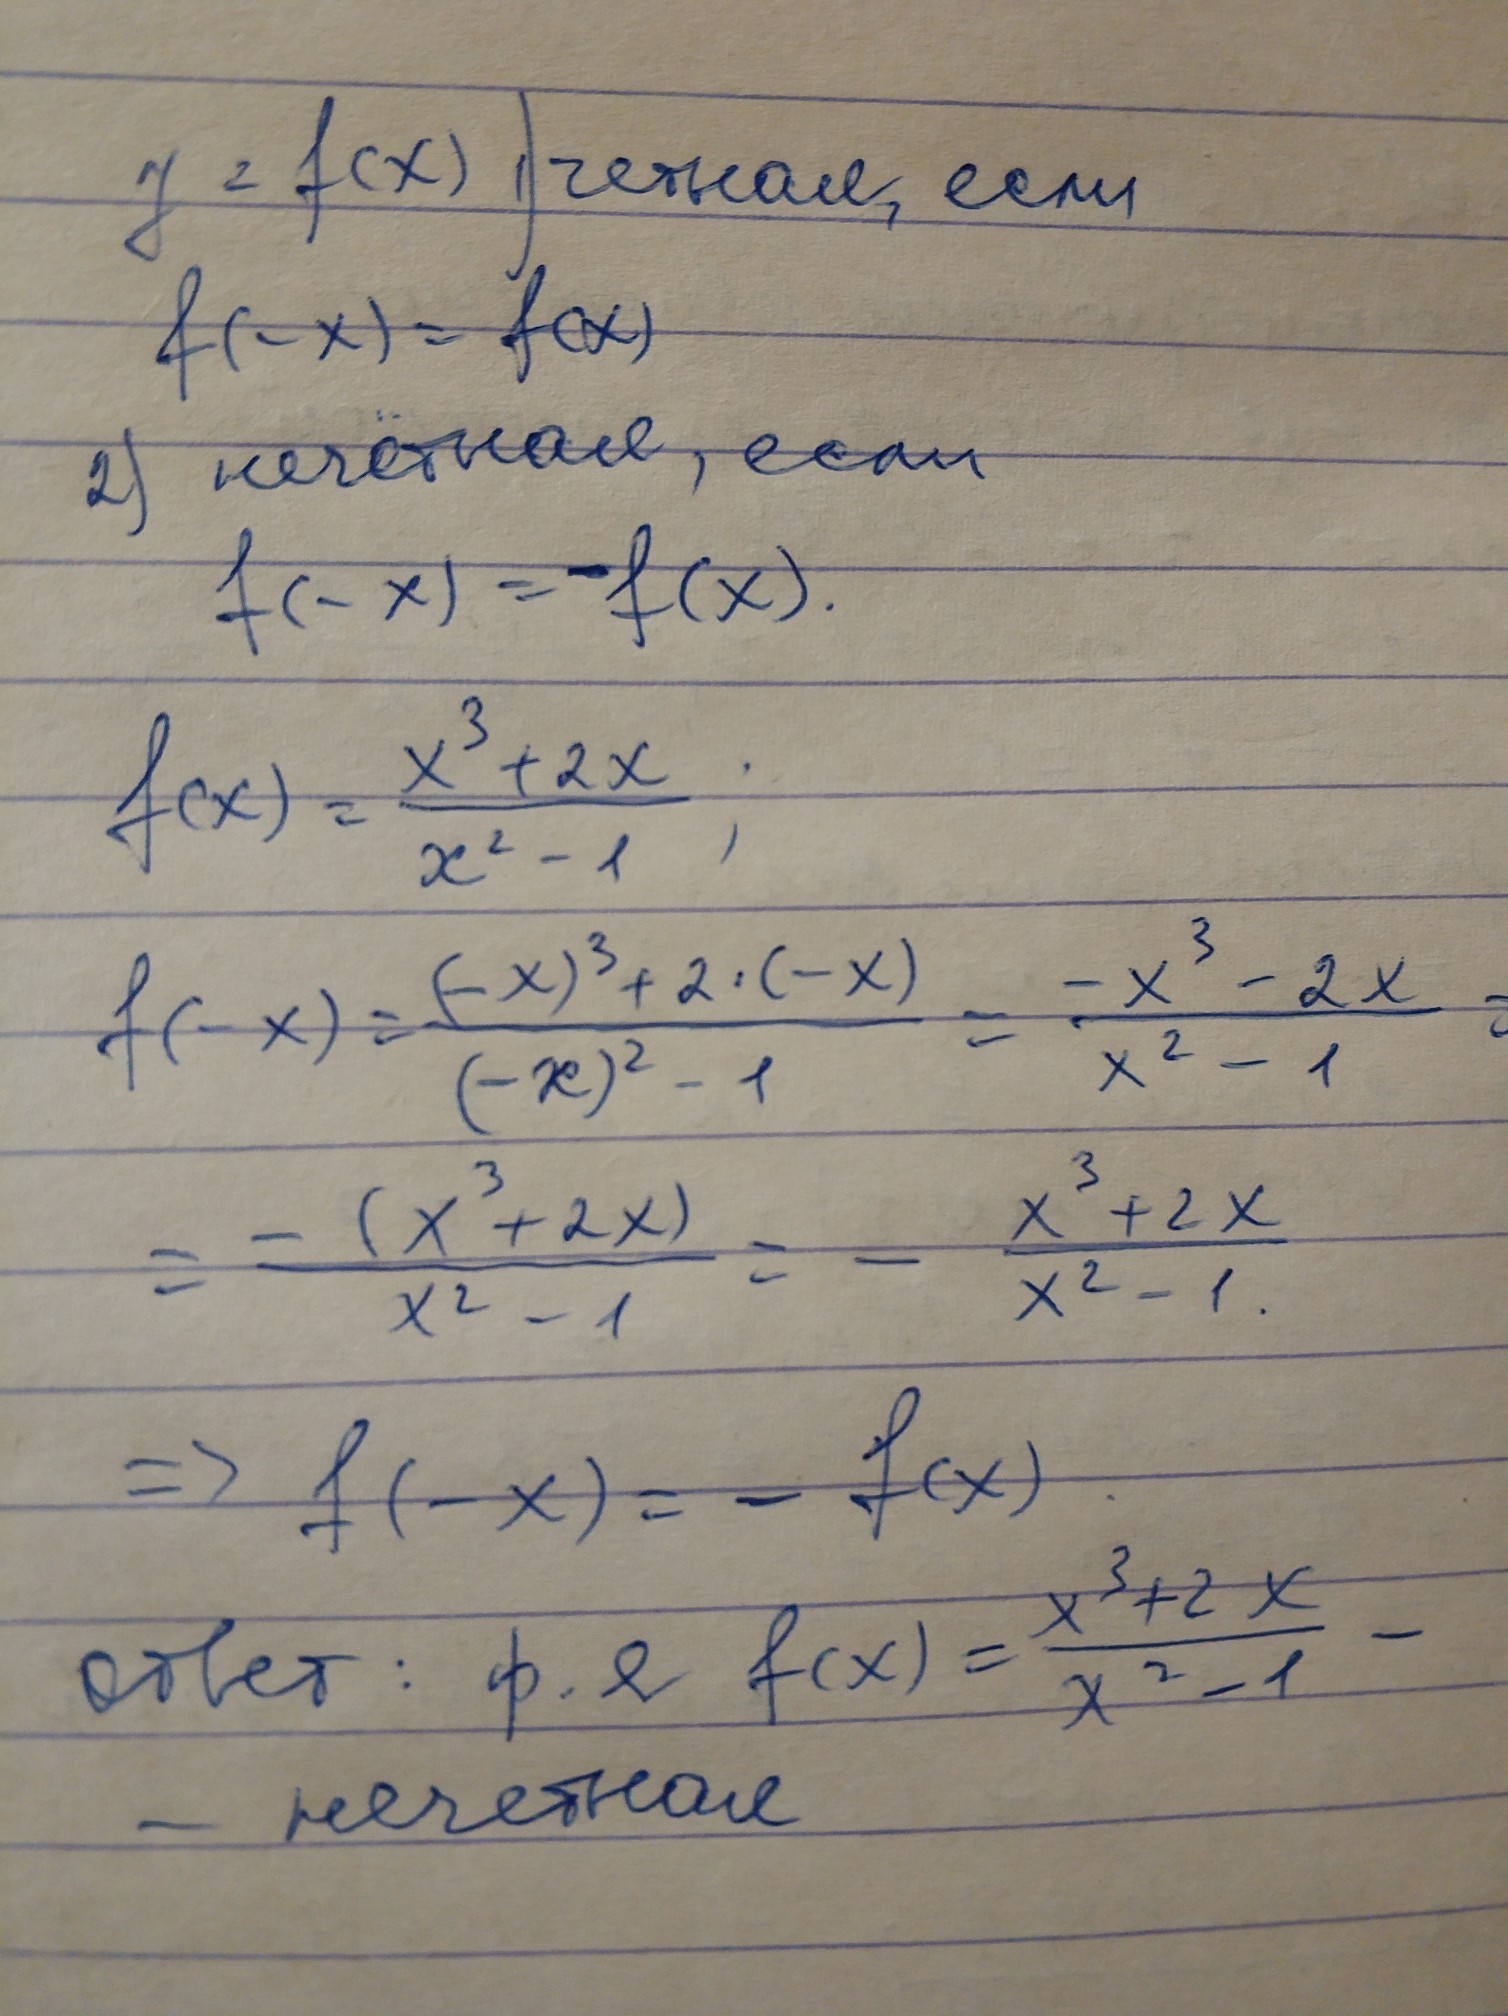 y = f(x) 1) четная, если
f(-x) = f(x)
2) нечётная, если
f(-x) = -f(x).
f(x) = (x³+2x)/(x²-1);
f(-x) = ((-x)³+2·(-x))/((-x)²-1) = (-x³-2x)/(x²-1) =
= (-(x³+2x))/(x²-1) = - (x³+2x)/(x²-1).
=> f(-x) = - f(x).
ответ: ф.я f(x) = (x³+2x)/(x²-1) -
- нечетная